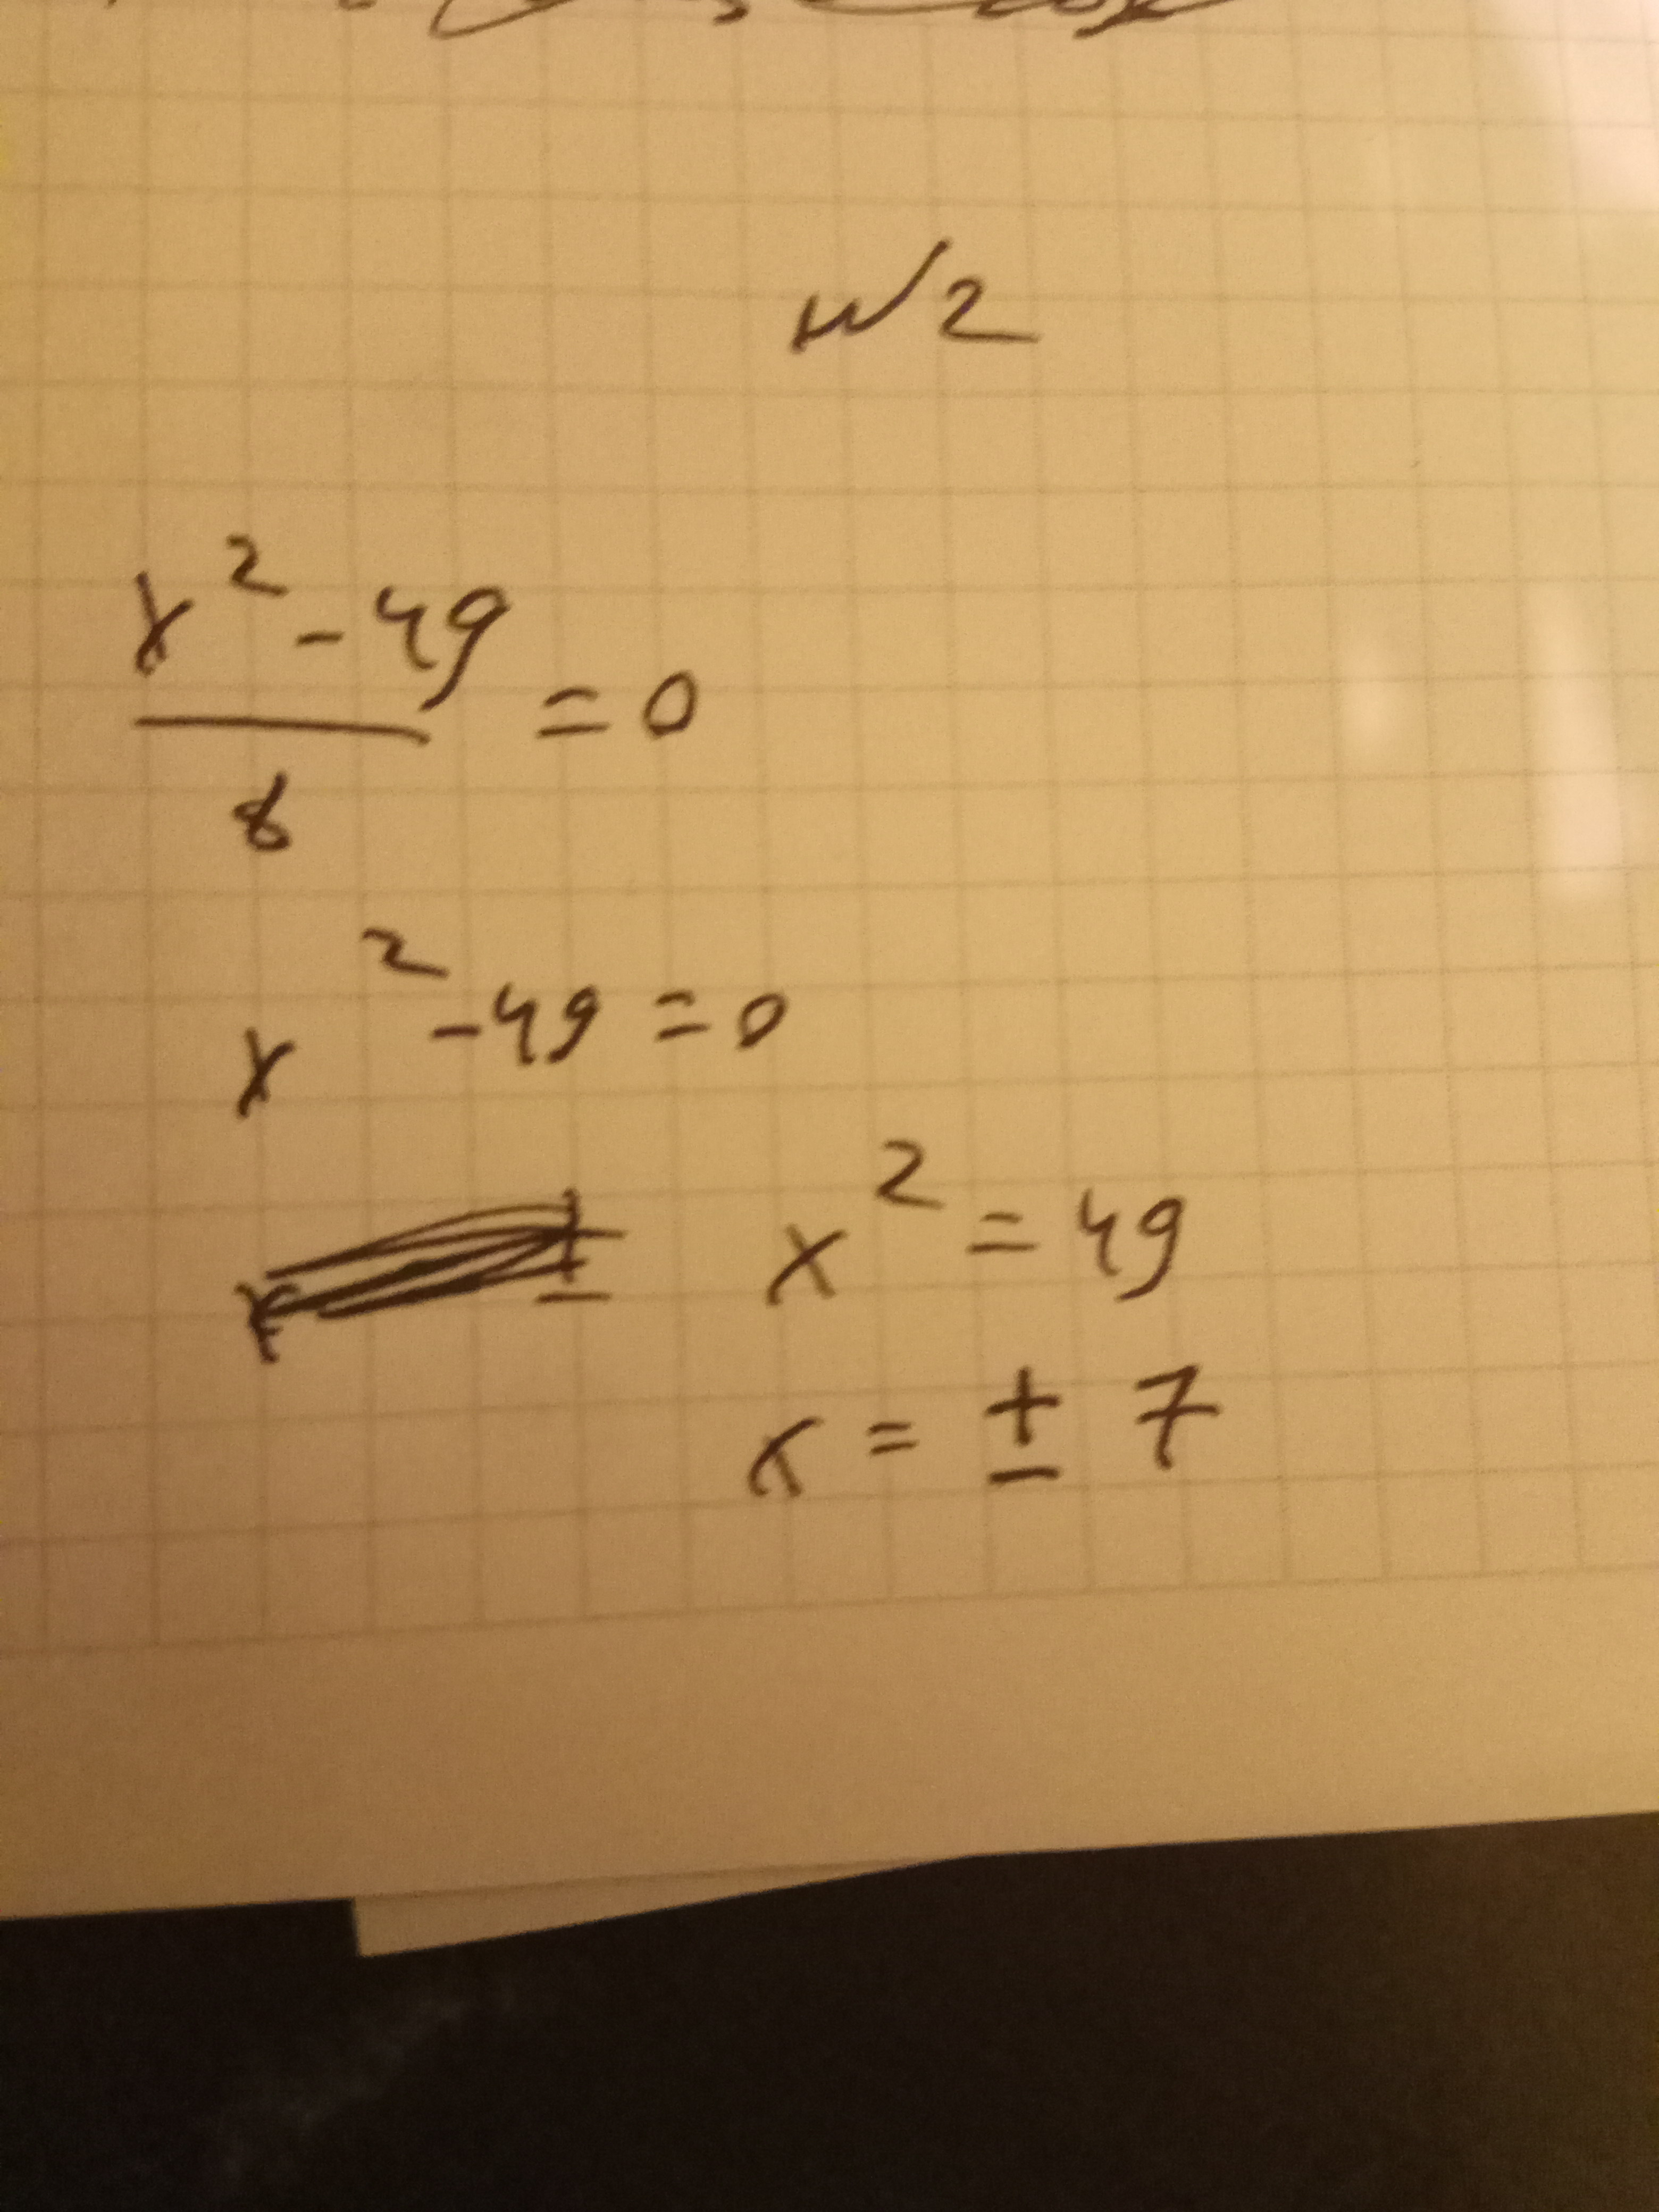 №2
x² - 49 / 8 = 0
x² - 49 = 0
x² = 49
x = ± 7